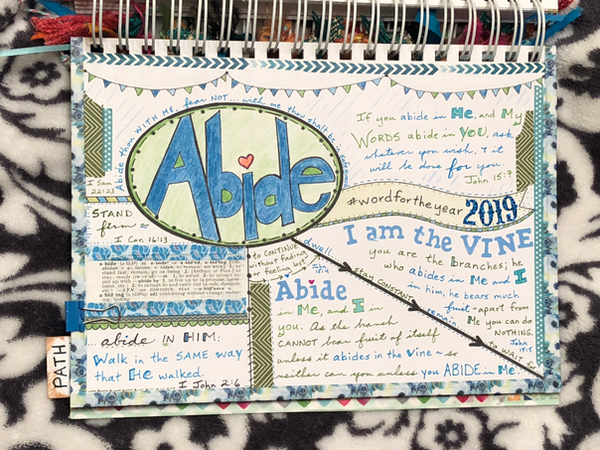 Abide thou WITH ME, fear NOT... with me thou shalt be in safeguard
I Sam 22:23
Abide
If you abide in Me, and My
WORDS abide in YOU, ask
whatever you wish, & it
will be done for you.
John 15:7
#wordfortheyear 2019
STAND
firm
I Cor. 16:13
I am the VINE
you are the Branches; he
who abides in Me and I
in him, he bears much
fruit - apart from
Me you can do
NOTHING.
John 15:5
to CONTINUE
without fading
or feeling lost
dwell
stay CONSTANT
remain
to WAIT
Abide
in Me, and I in
you. As the branch
CANNOT bear fruit of itself
unless it abides in the vine ~ so
neither can you unless you ABIDE in Me.
... abide IN HIM:
Walk in the SAME way
that He walked.
I John 2:6
PATH